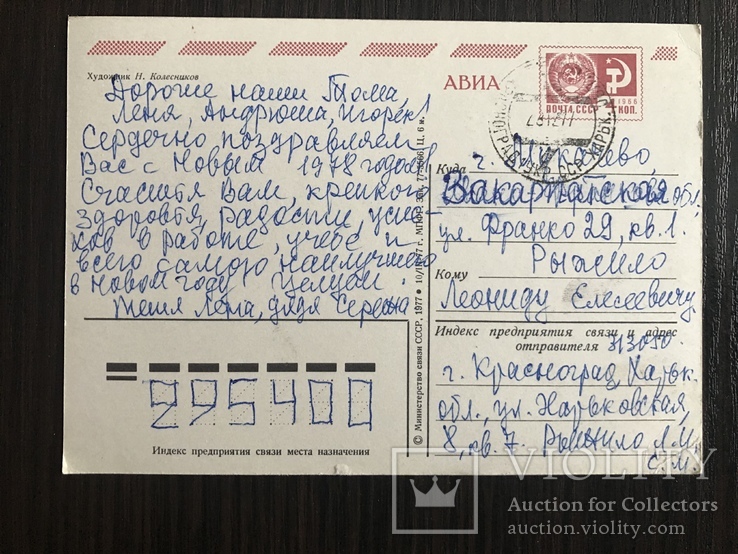 Художник Н. Колесников
АВИА
ПОЧТА СССР
1966
7 КОП.
Дорогие наши Тома,
Леня, Андрюша, Игорек!
Сердечно поздравляем
Вас с Новым 1978 годом
Счастья Вам, крепкого
здоровья, радости, успе-
ков в работе, учебе и
всего самого наилучшего
в Новом году Целуем:
тетя Лена, дядя Сережа
Куда
г. Мукачево,
Закарпатская обл.
ул. Франко 29, кв. 1.
Кому
Рыжило
Леониду Елесеевичу
Индекс предприятия связи и адрес
отправителя
313050
г. Красноград, Харьк.
обл., ул. Харьковская,
8, кв. 7. Рыжило Л.М,
С.М
295400
Индекс предприятия связи места назначения
© Министерство связи СССР, 1977
VIOLITY
Auction for Collectors
auction.violity.com